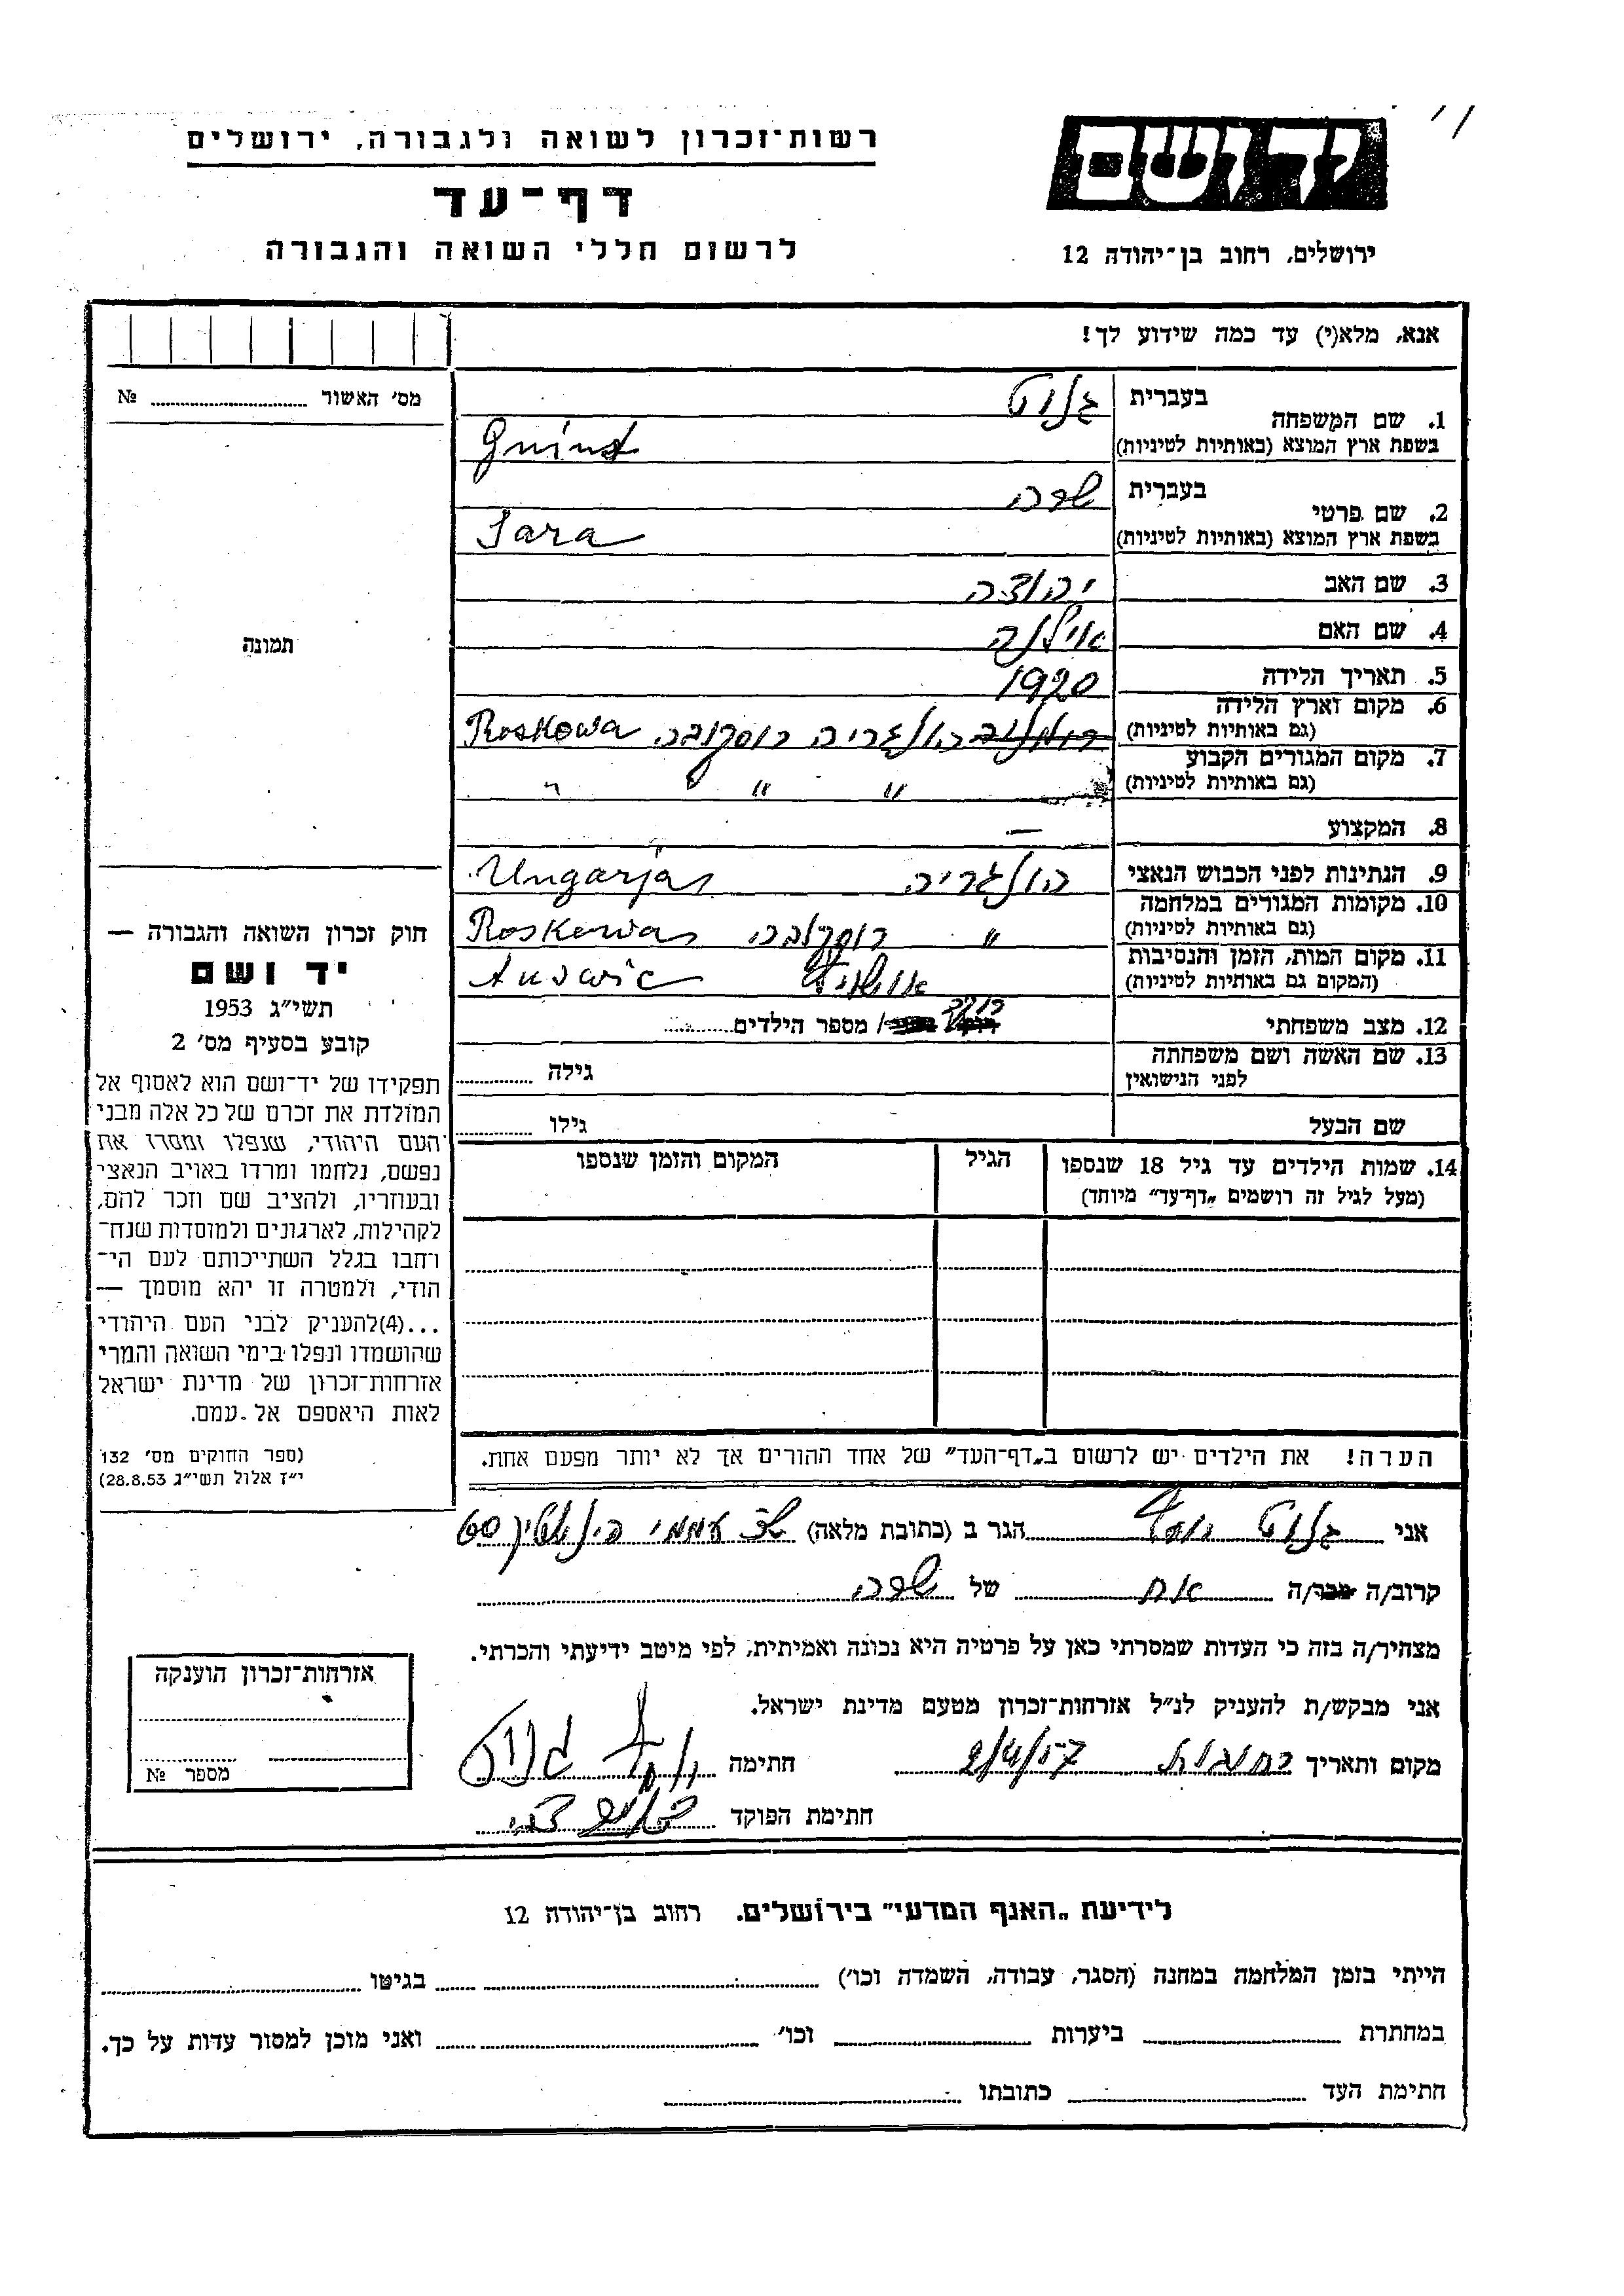 רשות־זכרון לשואה ולגבורה, ירושלים
יד ושם
דף־עד
לרשום חללי השואה והגבורה
ירושלים, רחוב בן־יהודה 12
אנא, מלא(י) עד כמה שידוע לך!
מס' האשור № ........
1. שם המשפחה
בעברית
בשפת ארץ המוצא (באותיות לטיניות)
2. שם פרטי
בעברית שרה
בשפת ארץ המוצא (באותיות לטיניות) Sara
3. שם האב יהודה
4. שם האם
5. תאריך הלידה 1920
6. מקום וארץ הלידה
(גם באותיות לטיניות) הונגריה רוסקובה Roskowa
7. מקום המגורים הקבוע
(גם באותיות לטיניות) " " "
8. המקצוע —
9. הנתינות לפני הכבוש הנאצי הונגריה Ungarja
10. מקומות המגורים במלחמה
(גם באותיות לטיניות) " רוסקובה Roskowa
11. מקום המות, הזמן והנסיבות
(המקום גם באותיות לטיניות) אושויץ Auswic
12. מצב משפחתי רווקה / מספר הילדים ........
13. שם האשה ושם משפחתה
לפני הנישואין
גילה ........
שם הבעל
גילו ........
14. שמות הילדים עד גיל 18 שנספו
(מעל לגיל זה רושמים „דף־עד" מיוחד)
הגיל
המקום והזמן שנספו
הערה! את הילדים יש לרשום ב„דף־העד" של אחד ההורים אך לא יותר מפעם אחת.
תמונה
חוק זכרון השואה והגבורה —
יד ושם
תשי"ג 1953
קובע בסעיף מס' 2
תפקידו של יד־ושם הוא לאסוף אל
המולדת את זכרם של כל אלה מבני
העם היהודי, שנפלו ומסרו את
נפשם, נלחמו ומרדו באויב הנאצי
ובעוזריו, ולהציב שם וזכר להם,
לקהילות, לארגונים ולמוסדות שנח־
רחבו בגלל השתייכותם לעם הי־
הודי, ולמטרה זו יהא מוסמך —
...(4)להעניק לבני העם היהודי
שהושמדו ונפלו בימי השואה והמרי
אזרחות־זכרון של מדינת ישראל
לאות היאספם אל עמם.
(ספר החוקים מס' 132
י"ז אלול תשי"ג 28.8.53)
אני הגר ב (כתובת מלאה)
קרוב/ה מכר/ה אח של שרה
מצהיר/ה בזה כי העדות שמסרתי כאן על פרטיה היא נכונה ואמיתית, לפי מיטב ידיעתי והכרתי.
אני מבקש/ת להעניק לנ"ל אזרחות־זכרון מטעם מדינת ישראל.
מקום ותאריך רחובות 2/4/57 חתימה
חתימת הפוקד
אזרחות־זכרון הוענקה
מספר №
לידיעת „האגף המדעי" בירושלים. רחוב בן־יהודה 12
הייתי בזמן המלחמה במחנה (הסגר, עבודה, השמדה וכו') ........ בגיטו ........
במחתרת ........ ביערות ........ וכו' ........ ואני מוכן למסור עדות על כך.
חתימת העד ........ כתובתו ........